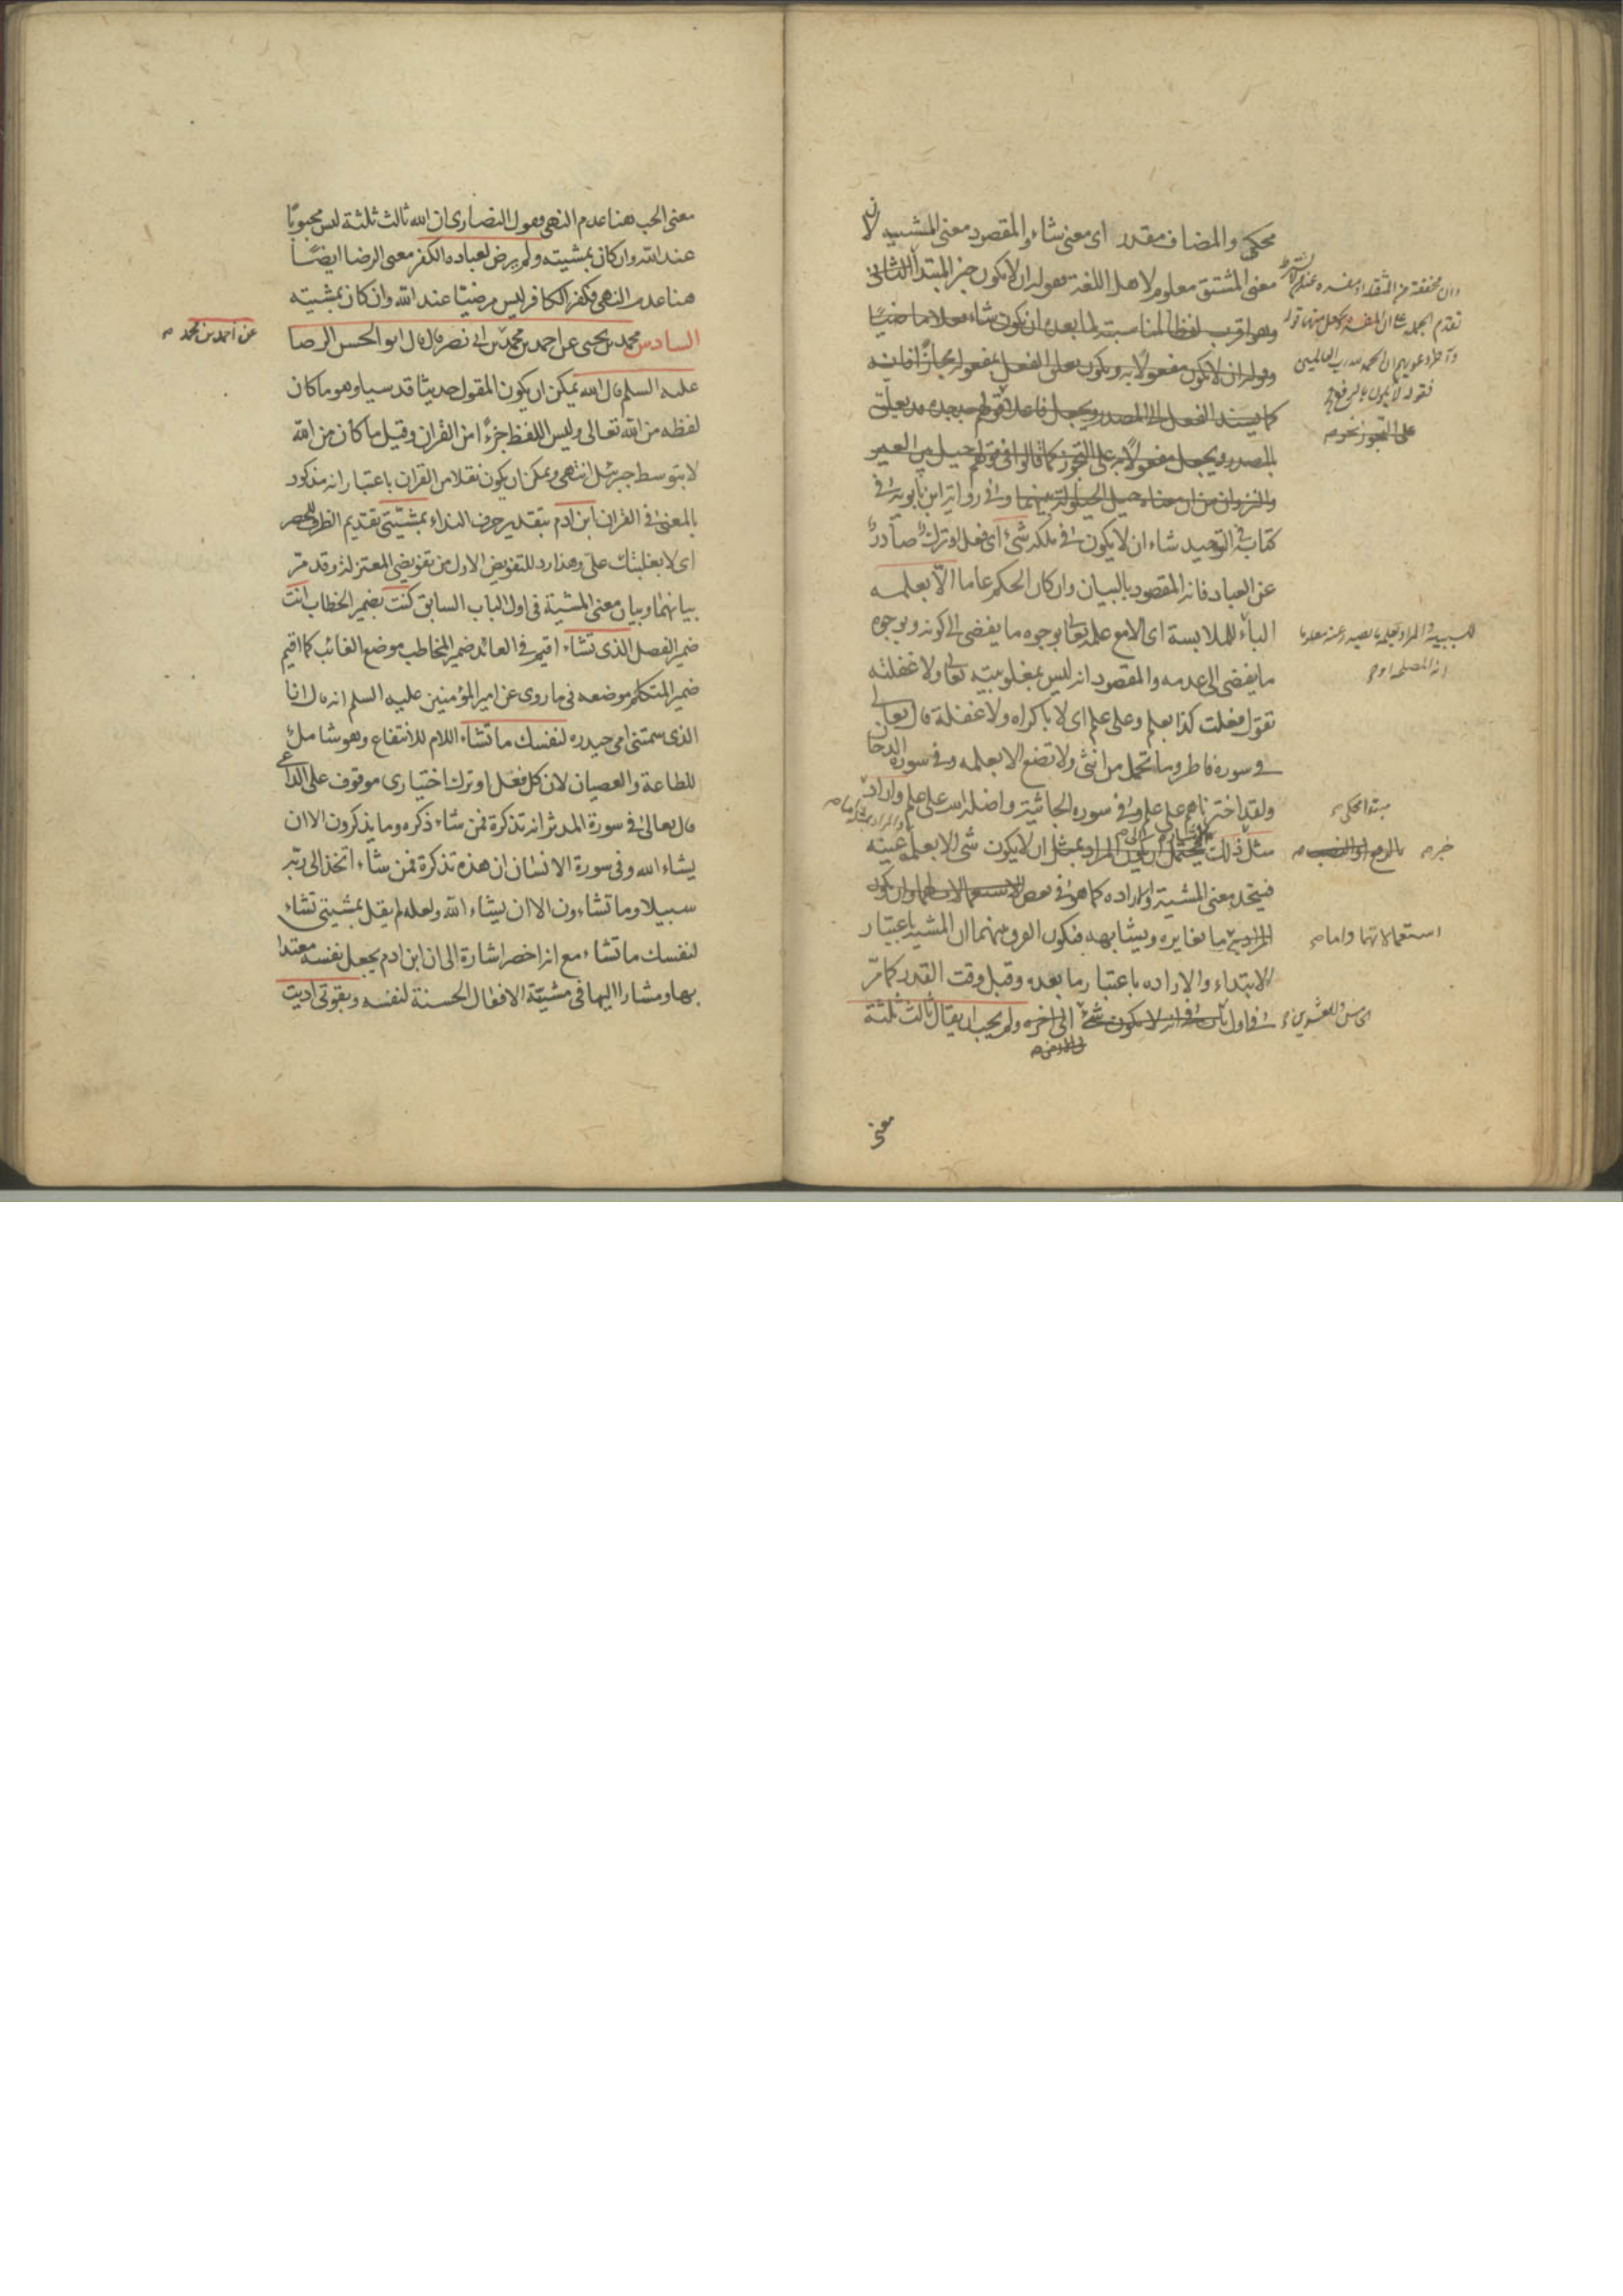 محكى والمضاف مقدر اى معنى شاء والمقصود معنى المشيه لان
معنى المشتق معلوم لاهل اللغة فقوله ان لا يكون خبر المبتدأ الثانى
وهو اقرب لفظا لمناسبته لما بعده ان يكون شاء فعلا ماضيا
وقوله ان لا يكون مفعولا به ويكون تعلق الفعل بمفعوله مجازا فانه
كما يسند الفعل الى المصدر ويجعل فاعلا كقولهم جد جده قد يعلق
بالمصدر ويجعل مفعولا به على التجوز كما قالوا فى قولهم حيل بين العير
والنزوان من ان معناه حيل الحيلولة بينهما وفى رواية ابن بابويه فى
كتابه فى التوحيد شاء ان لا يكون فى ملكه شئ اى فعل او ترك صادر
عن العباد فانه المقصود بالبيان وان كان الحكم عاما الا بعلمه
الباء للملابسة اى الامع علمه تعالى بوجوه ما يفضى الى كونه وبوجوه
ما يفضى الى عدمه والمقصود انه ليس بمغلوبيته تعالى ولا غفلته
تقول فعلت كذا بعلم وعلى علم اى لا باكراه ولا غفلة قال تعالى
فى سورة فاطر وما تحمل من انثى ولا تضع الا بعلمه وفى سورة الدخان
ولقد اخترناهم على علم وفى سورة الجاثية واضله الله على علم واراد
مثل ذلك يحتمل ان يكون المراد بمثل ان لا يكون شئ الا بعلمه عينه
فيتحد معنى المشية والارادة كما هو فى بعض الاستعمالات
المراد به ما يغايره ويشابهه فيكون الفرق بينهما ان المشية باعتبار
الابتداء والاراده باعتبار ما بعده وقبل وقت القدر كما مر
فى اول الى اخره ولم يحب ان يقال ثالث ثلثة
مبتدا محكى
خبره بالرفع او النصب
استعمالاتهما واما
الخامس والعشرين
معنى
معنى الحب هنا عدم النهى وقول النصارى ان الله ثالث ثلثة ليس محبوبا
عند الله وان كان بمشيته ولم يرض لعباده الكفر معنى الرضا ايضا
هنا عدم النهى وكفر الكافر ليس مرضيا عند الله وان كان بمشيته
السادس محمد بن يحيى عن احمد بن محمد بن ابى نصر قال قال ابو الحسن الرضا
عن احمد بن محمد
عليه السلم قال الله يمكن ان يكون المقول حديثا قدسيا وهو ما كان
لفظه من الله تعالى وليس اللفظ جزءا من القران وقيل ما كان من الله
لا بتوسط جبرئيل انتهى ويمكن ان يكون نقلا من القران باعتبار انه مذكور
بالمعنى فى القران ابن ادم بتقدير حرف النداء بمشيتى تقديم الظرف للحصر
اى لا بغلبتك على وهذا رد للتفويض الاول من تفويضى المعتزلة وقد مر
بيانهما وبيان معنى المشية فى اول الباب السابق كنت بضمير الخطاب انت
ضمير الفصل الذى تشاء اقيم فى العائد ضمير المخاطب موضع الغائب كما اقيم
ضمير المتكلم موضعه فى ما روى عن امير المؤمنين عليه السلم انه قال انا
الذى سمتنى امى حيدره لنفسك ما تشاء اللام للانتفاع وهو شامل
للطاعة والعصيان لان كل فعل او ترك اختيارى موقوف على الداعى
قال تعالى فى سورة المدثر انه تذكرة فمن شاء ذكره وما يذكرون الا ان
يشاء الله وفى سورة الانسان ان هذه تذكرة فمن شاء اتخذ الى ربه
سبيلا وما تشاءون الا ان يشاء الله ولعله لم يقل بمشيتى تشاء
لنفسك ما تشاء مع انه اخصر اشارة الى ان ابن ادم يجعل نفسه معتدا
بها ومشارا اليها فى مشية الافعال الحسنة لنفسه وبقوتى اديت